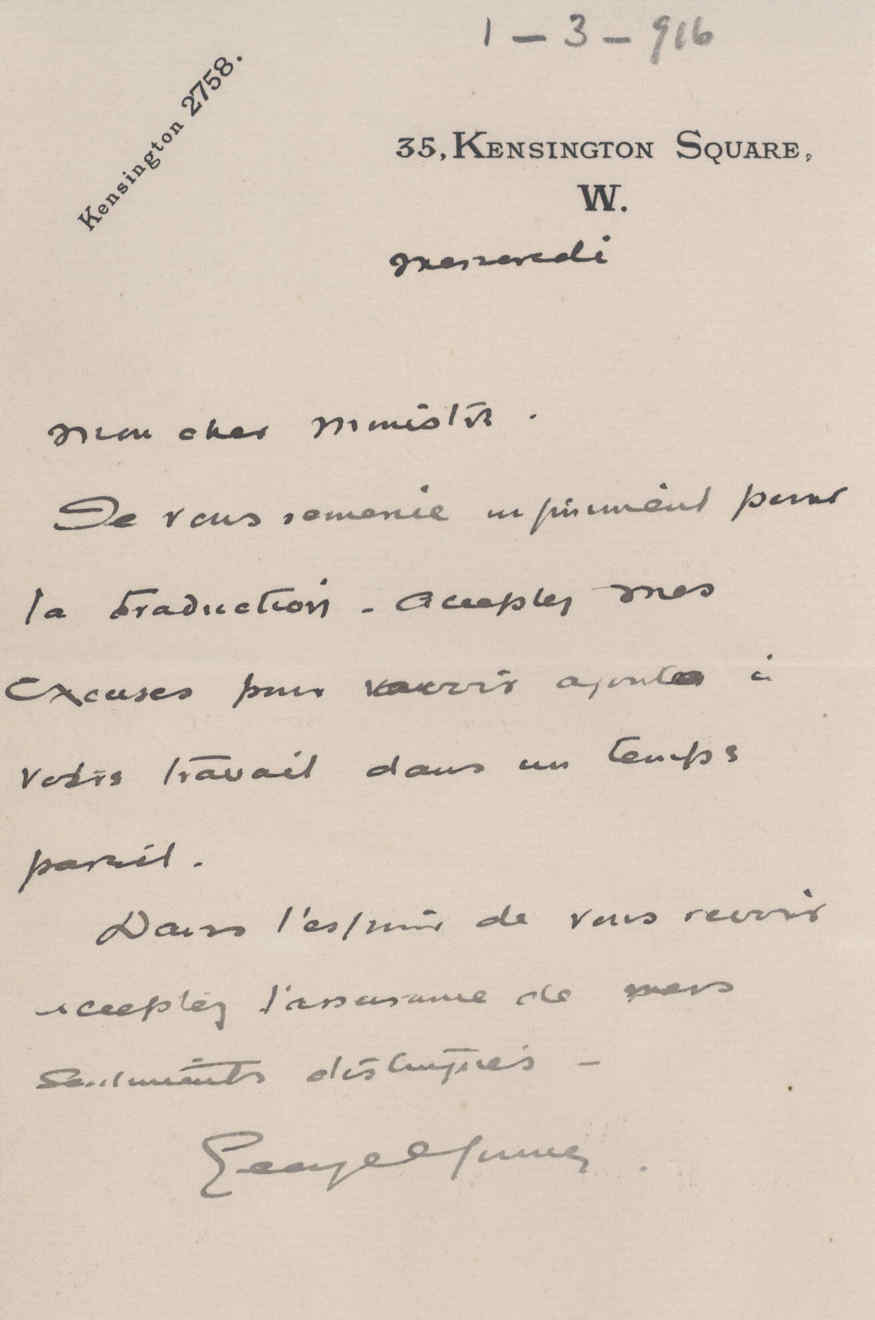 1 - 3 - 916
Kensington 2758.
35, KENSINGTON SQUARE,
W.
Mercredi
Mon cher Ministre.
Je vous remercie infiniment pour
la traduction - Acceptez mes
excuses pour ajouter à
votre travail dans un temps
pareil.
Dans l'espoir de vous revoir
acceptez l'assurance de mes
sentiments distingués -
George